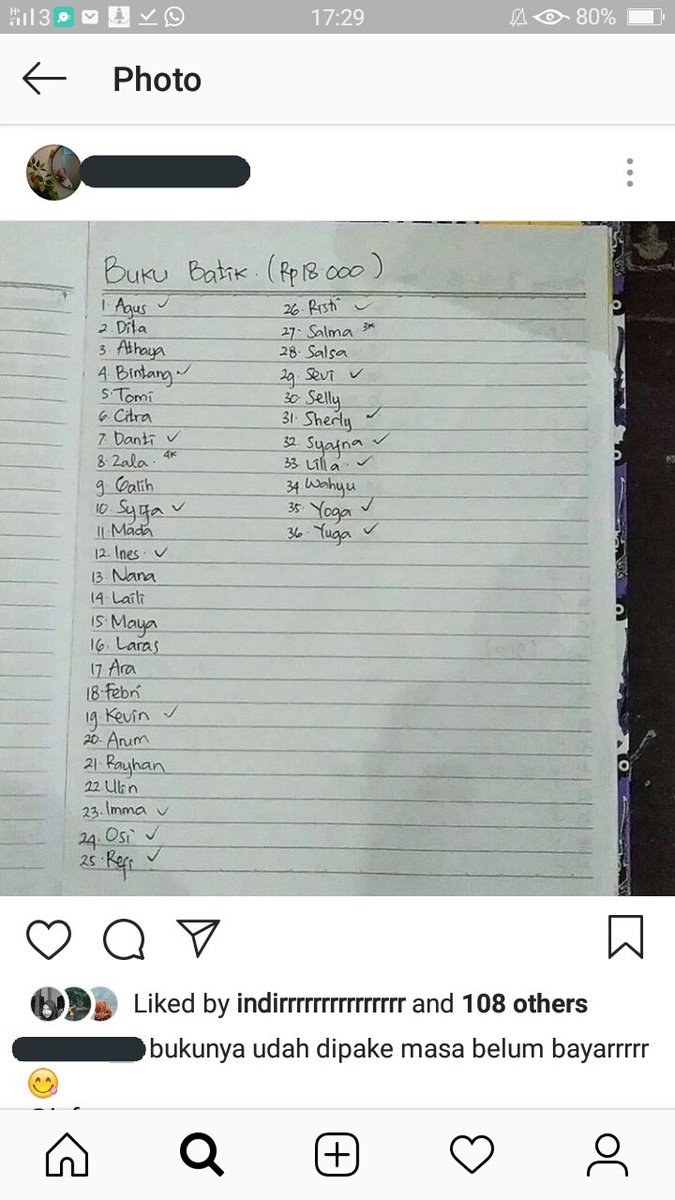 3
17:29
80%
Photo
Buku Batik. (Rp 18.000)
1. Agus ✓
2. Dita
3. Athaya
4. Bintang ✓
5. Tomi
6. Citra
7. Danti ✓
8. Zala. 4x
9. Galih
10. Syifa ✓
11. Mada
12. Ines. ✓
13. Nana
14. Laili
15. Maya
16. Laras
17. Ara
18. Febri
19. Kevin ✓
20. Arum
21. Rayhan
22. Ulin
23. Imma ✓
24. Osi ✓
25. Refi ✓
26. Risti ✓
27. Salma 3x
28. Salsa
29. Sevi ✓
30. Selly
31. Sherly ✓
32. Syafna ✓
33. Ulla. ✓
34. Wahyu
35. Yoga ✓
36. Yuga ✓
Liked by indirrrrrrrrrrrrrrr and 108 others
bukunya udah dipake masa belum bayarrrrr
😋